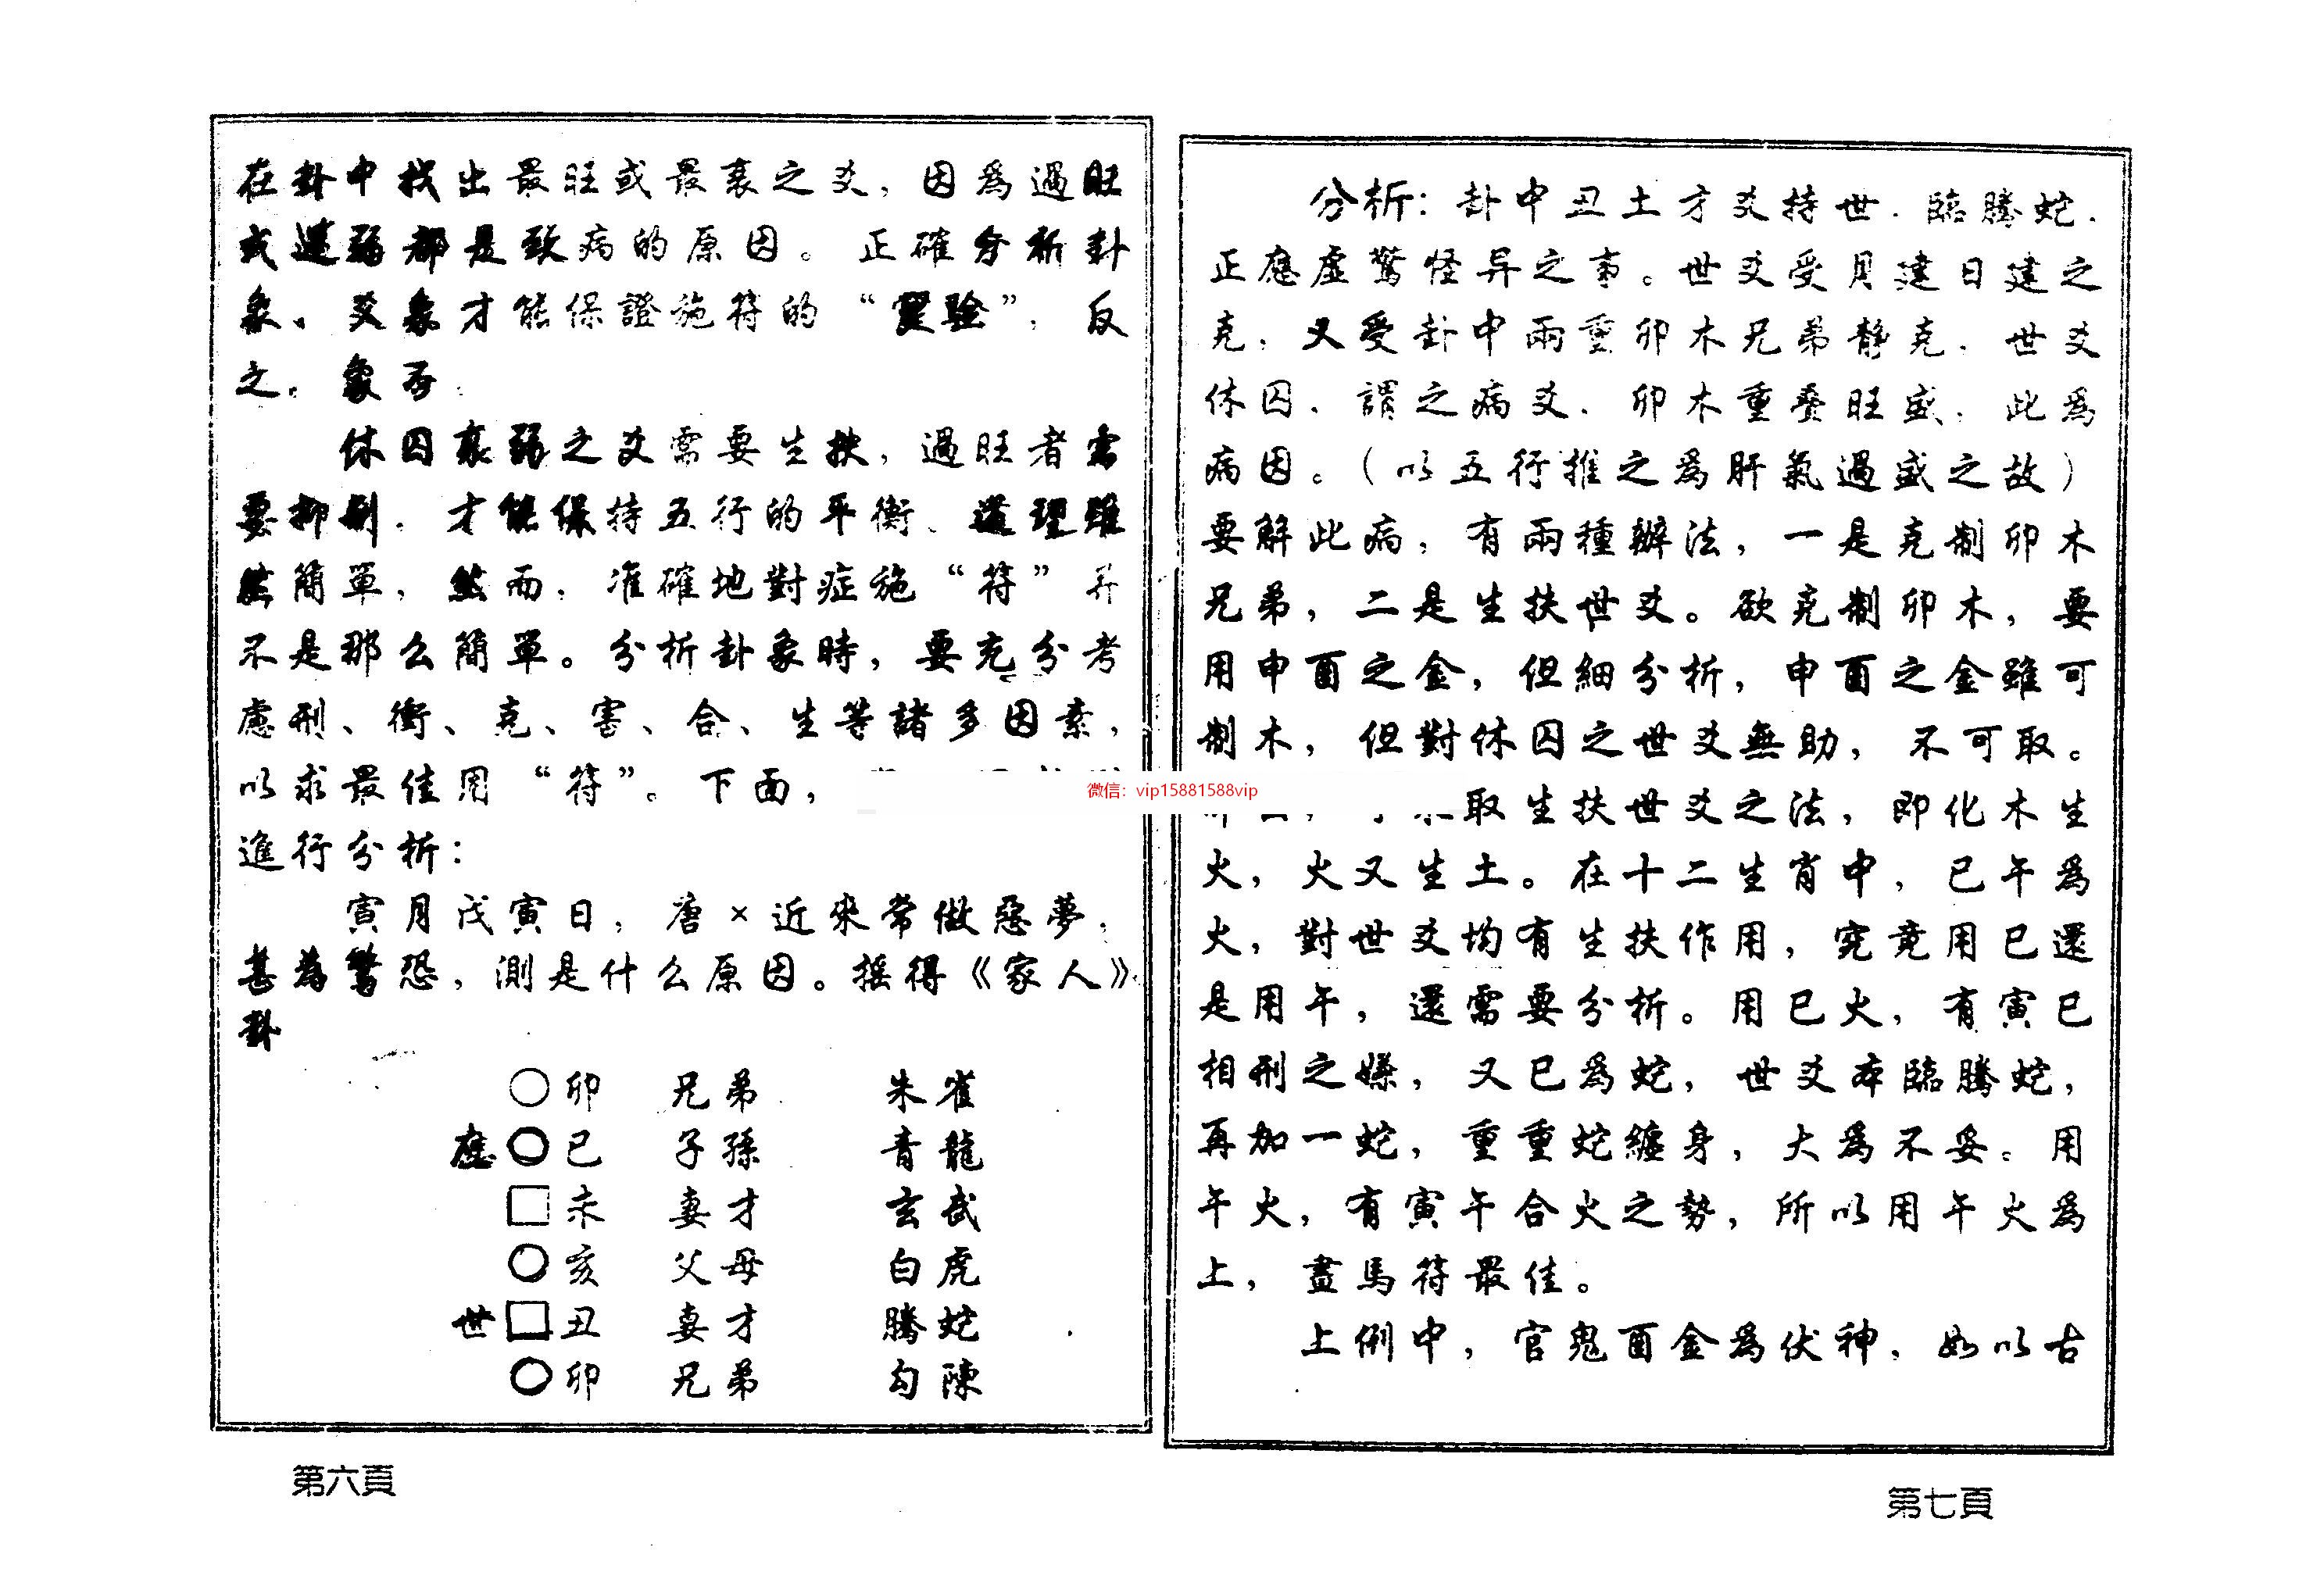 在卦中找出最旺或最衰之爻，因爲過旺
或過弱都是致病的原因。正確分析卦
象、爻象才能保證施符的“靈驗”，反
之，象否
休囚衰弱之爻需要生扶，過旺者需
要抑制，才能保持五行的平衡、道理雖
然簡單，然而，准確地對症施“符”并
不是那么簡單。分析卦象時，要充分考
慮刑、衝、克、害、合、生等諸多因素，
以求最佳用“符”。下面，
進行分析：
寅月戊寅日，唐×近來常做惡夢，
甚為驚恐，測是什么原因。摇得《家人》
卦
○卯 兄弟 朱雀
應○巳 子孫 青龍
□未 妻才 玄武
○亥 父母 白虎
世□丑 妻才 騰蛇
○卯 兄弟 勾陳
第六頁
微信：vip15881588vip
分析：卦中丑土才爻持世，臨騰蛇，
正應虚驚怪异之事。世爻受月建日建之
克，又受卦中兩重卯木兄弟静克，世爻
休囚，謂之病爻，卯木重叠旺盛，此爲
病因。（以五行推之爲肝氣過盛之故）
要解此病，有兩種辦法，一是克制卯木
兄弟，二是生扶世爻。欲克制卯木，要
用申酉之金，但細分析，申酉之金雖可
制木，但對休囚之世爻無助，不可取。
取生扶世爻之法，即化木生
火，火又生土。在十二生肖中，巳午爲
火，對世爻均有生扶作用，究竟用巳還
是用午，還需要分析。用巳火，有寅巳
相刑之嫌，又巳爲蛇，世爻本臨騰蛇，
再加一蛇，重重蛇纏身，大爲不妥。用
午火，有寅午合火之勢，所以用午火爲
上，畫馬符最佳。
上例中，官鬼酉金爲伏神，如以古
第七頁